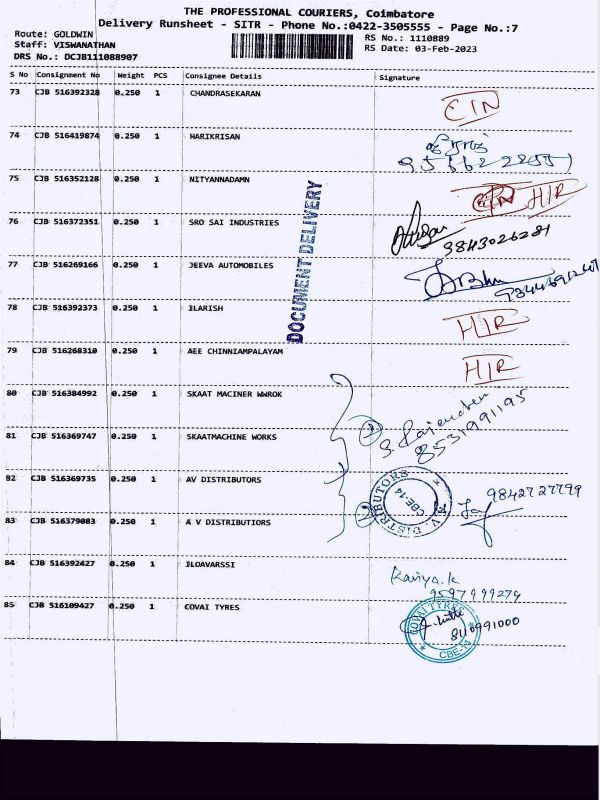 THE PROFESSIONAL COURIERS, Coimbatore
Delivery Runsheet - SITR - Phone No.:0422-3505555 - Page No.:7
Route: GOLDWIN
Staff: VISWANATHAN
DRS No.: DCJB111088907
RS No.: 1110889
RS Date: 03-Feb-2023
S No Consignment No Weight PCS Consignee Details Signature
73 CJB 516392328 0.250 1 CHANDRASEKARAN
74 CJB 516419874 0.250 1 HARIKRISAN
75 CJB 516352128 0.250 1 NITYANNADAMN HIR
76 CJB 516372351 0.250 1 SRO SAI INDUSTRIES 9843026281
77 CJB 516269166 0.250 1 JEEVA AUTOMOBILES
78 CJB 516392373 0.250 1 ILARISH HIR
79 CJB 516268310 0.250 1 AEE CHINNIAMPALAYAM HIR
DOCUMENT DELIVERY
80 CJB 516384992 0.250 1 SKAAT MACINER WWROK
81 CJB 516369747 0.250 1 SKAATMACHINE WORKS 8531991195
82 CJB 516369735 0.250 1 AV DISTRIBUTORS 9842727799
A.V. DISTRIBUTORS CBE-14
83 CJB 516379083 0.250 1 A V DISTRIBUTIORS
84 CJB 516392427 0.250 1 ILOAVARSSI
9597999274
85 CJB 516109427 0.250 1 COVAI TYRES
COVAI TYRES CBE-14
8110991000